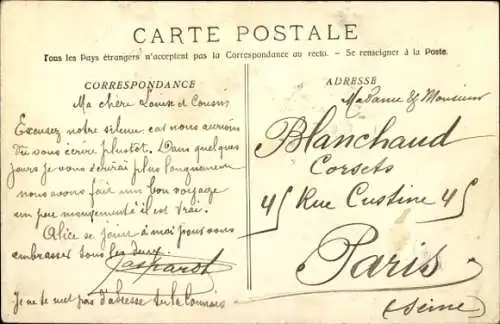 CARTE POSTALE
Tous les Pays étrangers n'acceptent pas la Correspondance au recto. - Se renseigner à la Poste.
CORRESPONDANCE
Ma chère Louise et Cousin
Excusez notre silence car nous aurions
dû vous écrire plustôt. Dans quelques
jours je vous écrirai plus longuement
nous avons fait un bon voyage
un peu mouvementé il est vrai.
Alice se joint à moi pour vous
embrasser tous les deux.
Je ne te met pas d'adresse tu la connais
ADRESSE
Madame & Monsieur
Blanchaud
Corsets
45 Rue Custine 45
Paris
(Seine)